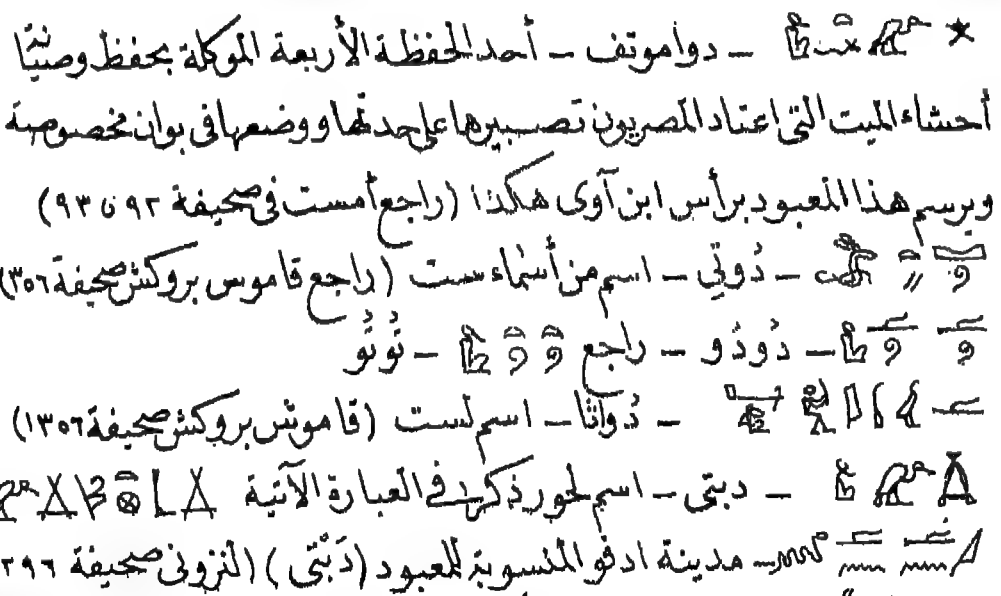 – دواموتف – أحد الحفظة الأربعة الموكلة بحفظ وصيّا
أحشاء الميت التى اعتاد المصريون تصبيرها على حدتها ووضعها فى بوان مخصوصة
ويرسم هذا المعبود برأس ابن آوى هكذا (راجع أمست فى صحيفة ٩٢ ن ٩٣)
– دُوتِي – اسم من أسماء ست (راجع قاموس بروكش صحيفة ٣٥٦)
– دُودُو – راجع – تُوتُو
– دُواتا – اسم لست (قاموس بروكش صحيفة ١٣٥٦)
– دبتى – اسم لحور ذكر فى العبارة الآتية
– مدينة ادفو المنسوبة للمعبود (دَبْتى) (النزونى صحيفة ٢٩٦